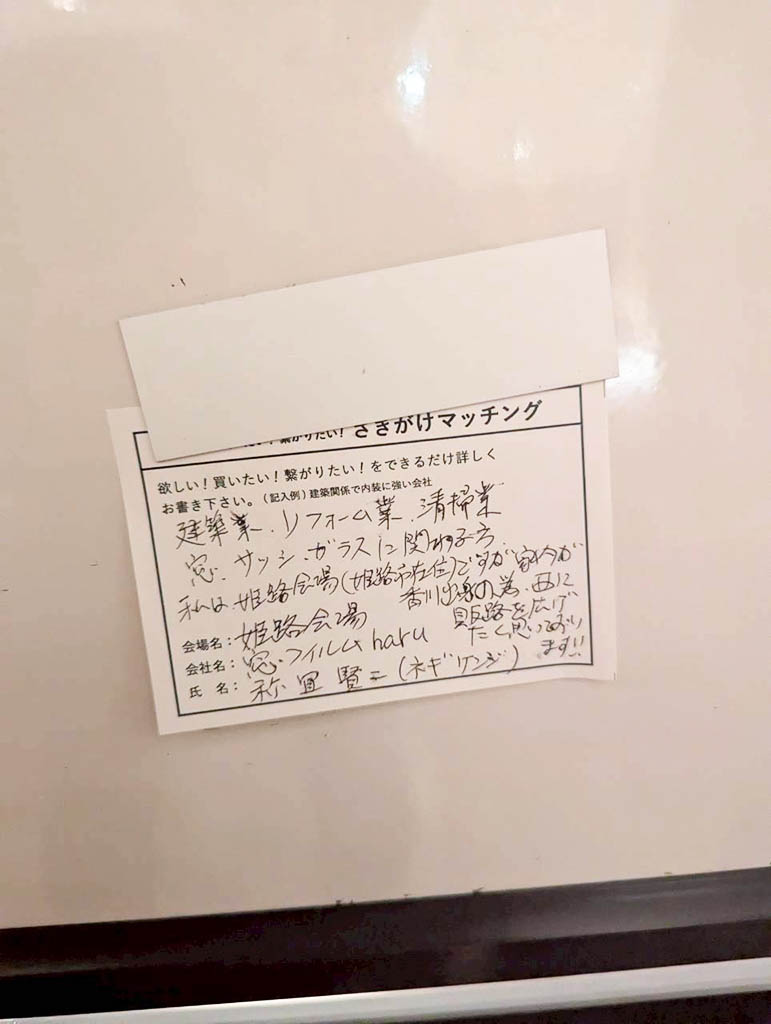 い！繋がりたい！さきがけマッチング
欲しい！買いたい！繋がりたい！をできるだけ詳しく
お書き下さい。（記入例）建築関係で内装に強い会社
建築業、リフォーム業、清掃業
窓、サッシ、ガラスに関わる方
私は姫路会場(姫路市在住)ですが家内が
香川出身の為、西に
販路を広げ
たく思っており
ます!!
会場名：姫路会場
会社名：窓フィルムharu
氏　名：祢冝賢二(ネギケンジ)